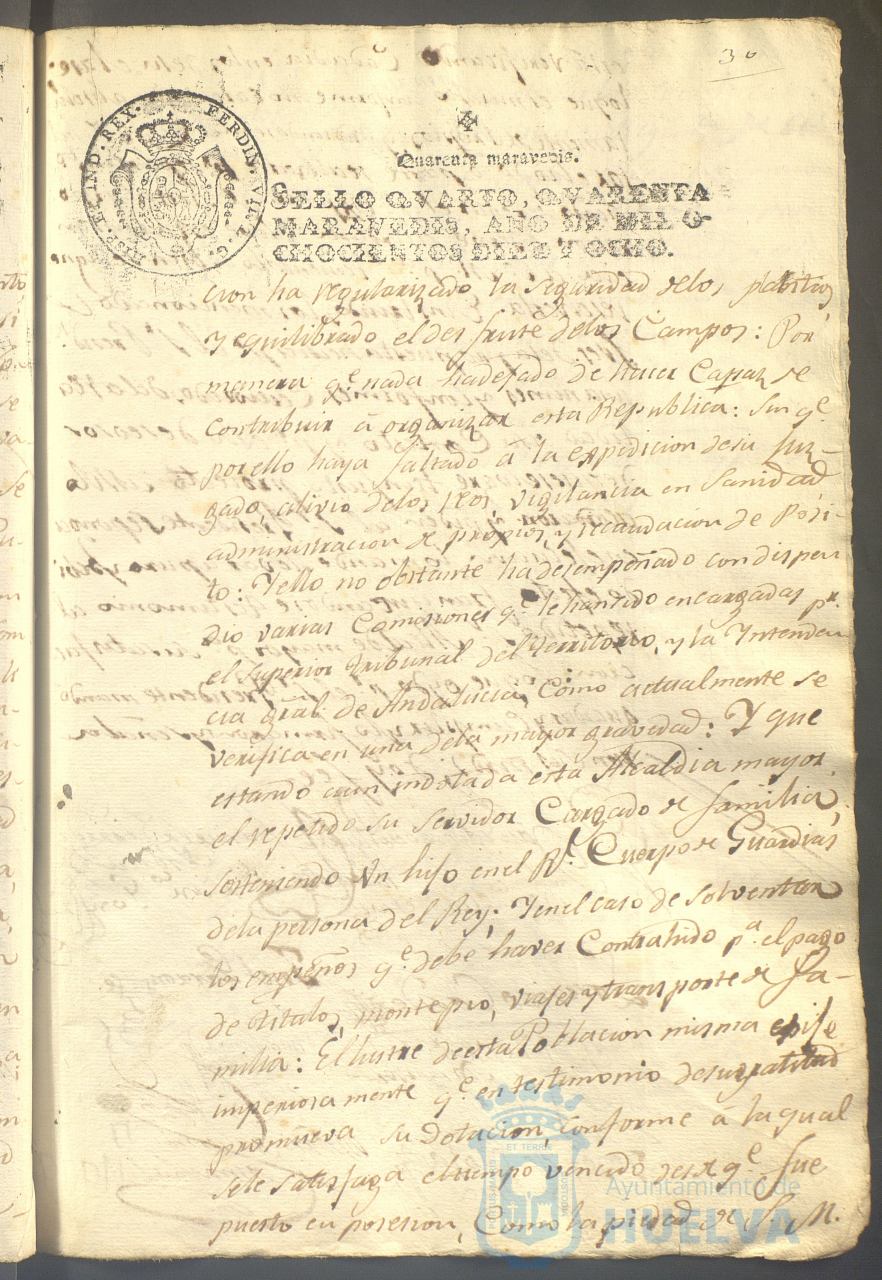 30
HISP. ET IND. REX. FERDIN. VII. D. G.
Quarenta maravedis.
SELLO QVARTO, QVARENTA
MARAVEDIS, AÑO DE MIL O
CHOCIENTOS DIEZ Y OCHO.
cion ha regularizado la seguridad delos plantios
y equilibrado el desfrute delos Campos: Por
manera qe. nada hadejado de hacer Capaz de
contribuir á organizar esta Republica: Sin qe.
por ello haya faltado á la expedicion desu Juz-
gado, alivio delos reos, vigilancia en Sanidad
administracion de propios, y recaudacion de Posi-
to: Yello no obstante ha desempeñado con dispen-
dio varias Comisiones qe. lehansido encargadas pr.
el Superior tribunal del Territorio, y la Intenden-
cia gral. de Andalucia, Como actualmente se
verifica en una dela mayor gravedad: Y que
estando aun indotada esta Alcaldia mayor,
el repetido su servidor Cargado de familia,
sosteniendo Un hijo enel Rl. Cuerpo de Guardias
dela persona del Rey; Yenel caso de solventar
los empeños qe. debe haver Contrahido pa. el pago
de titulos, montepio, viajes y transporte de Fa-
milia: El lustre de esta Poblacion misma exije
imperiosamente qe. en testimonio desu gratitud
promueva su dotacion, conforme á la qual
sele satisfaga el tiempo vencido desde qe. fue
puesto en posesion, Como la piedad de S. M.
ET TERRAE
PORTUS MARIS
CUSTODIA
Ayuntamiento de
HUELVA